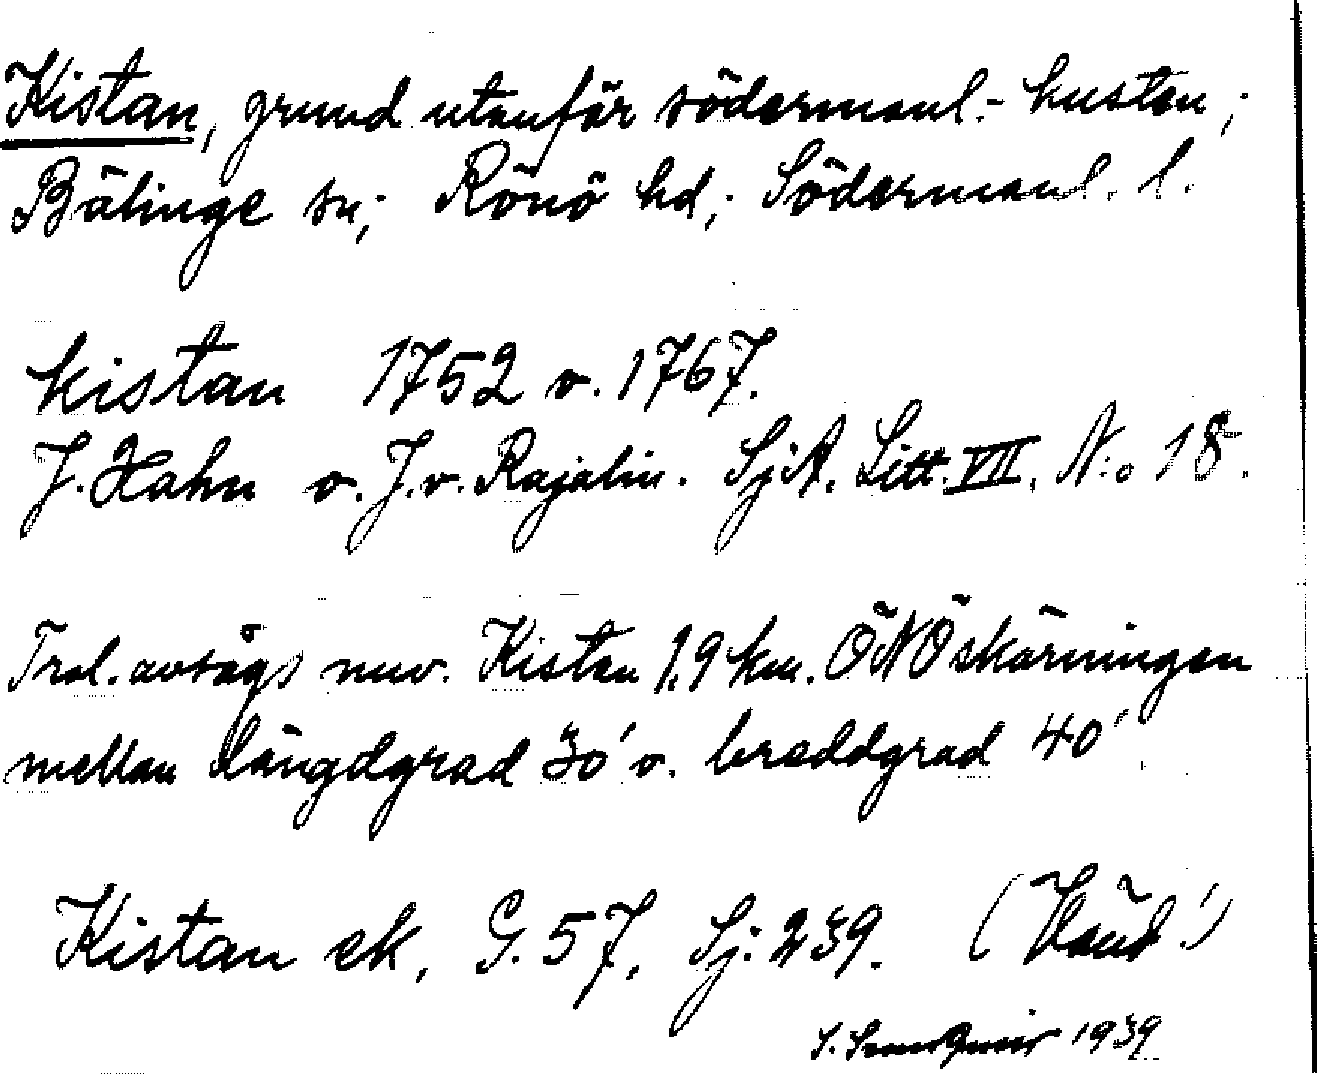 Kistan, grund utanför södermanl.-kusten;
Bälinge sn; Rönö hd; Södermanl. l.
kistan 1752 o. 1767.
J. Hahn o. J. v. Rajalin. SjA. Litt. VII. N:o 18.
Trol. avsågs nuv. Kistan 1,9 km. ÖNÖ skärningen
mellan längdgrad 30' o. breddgrad 40'
Kistan ek. G. 57, Sj: 239. (Vänd!)
S. 1939